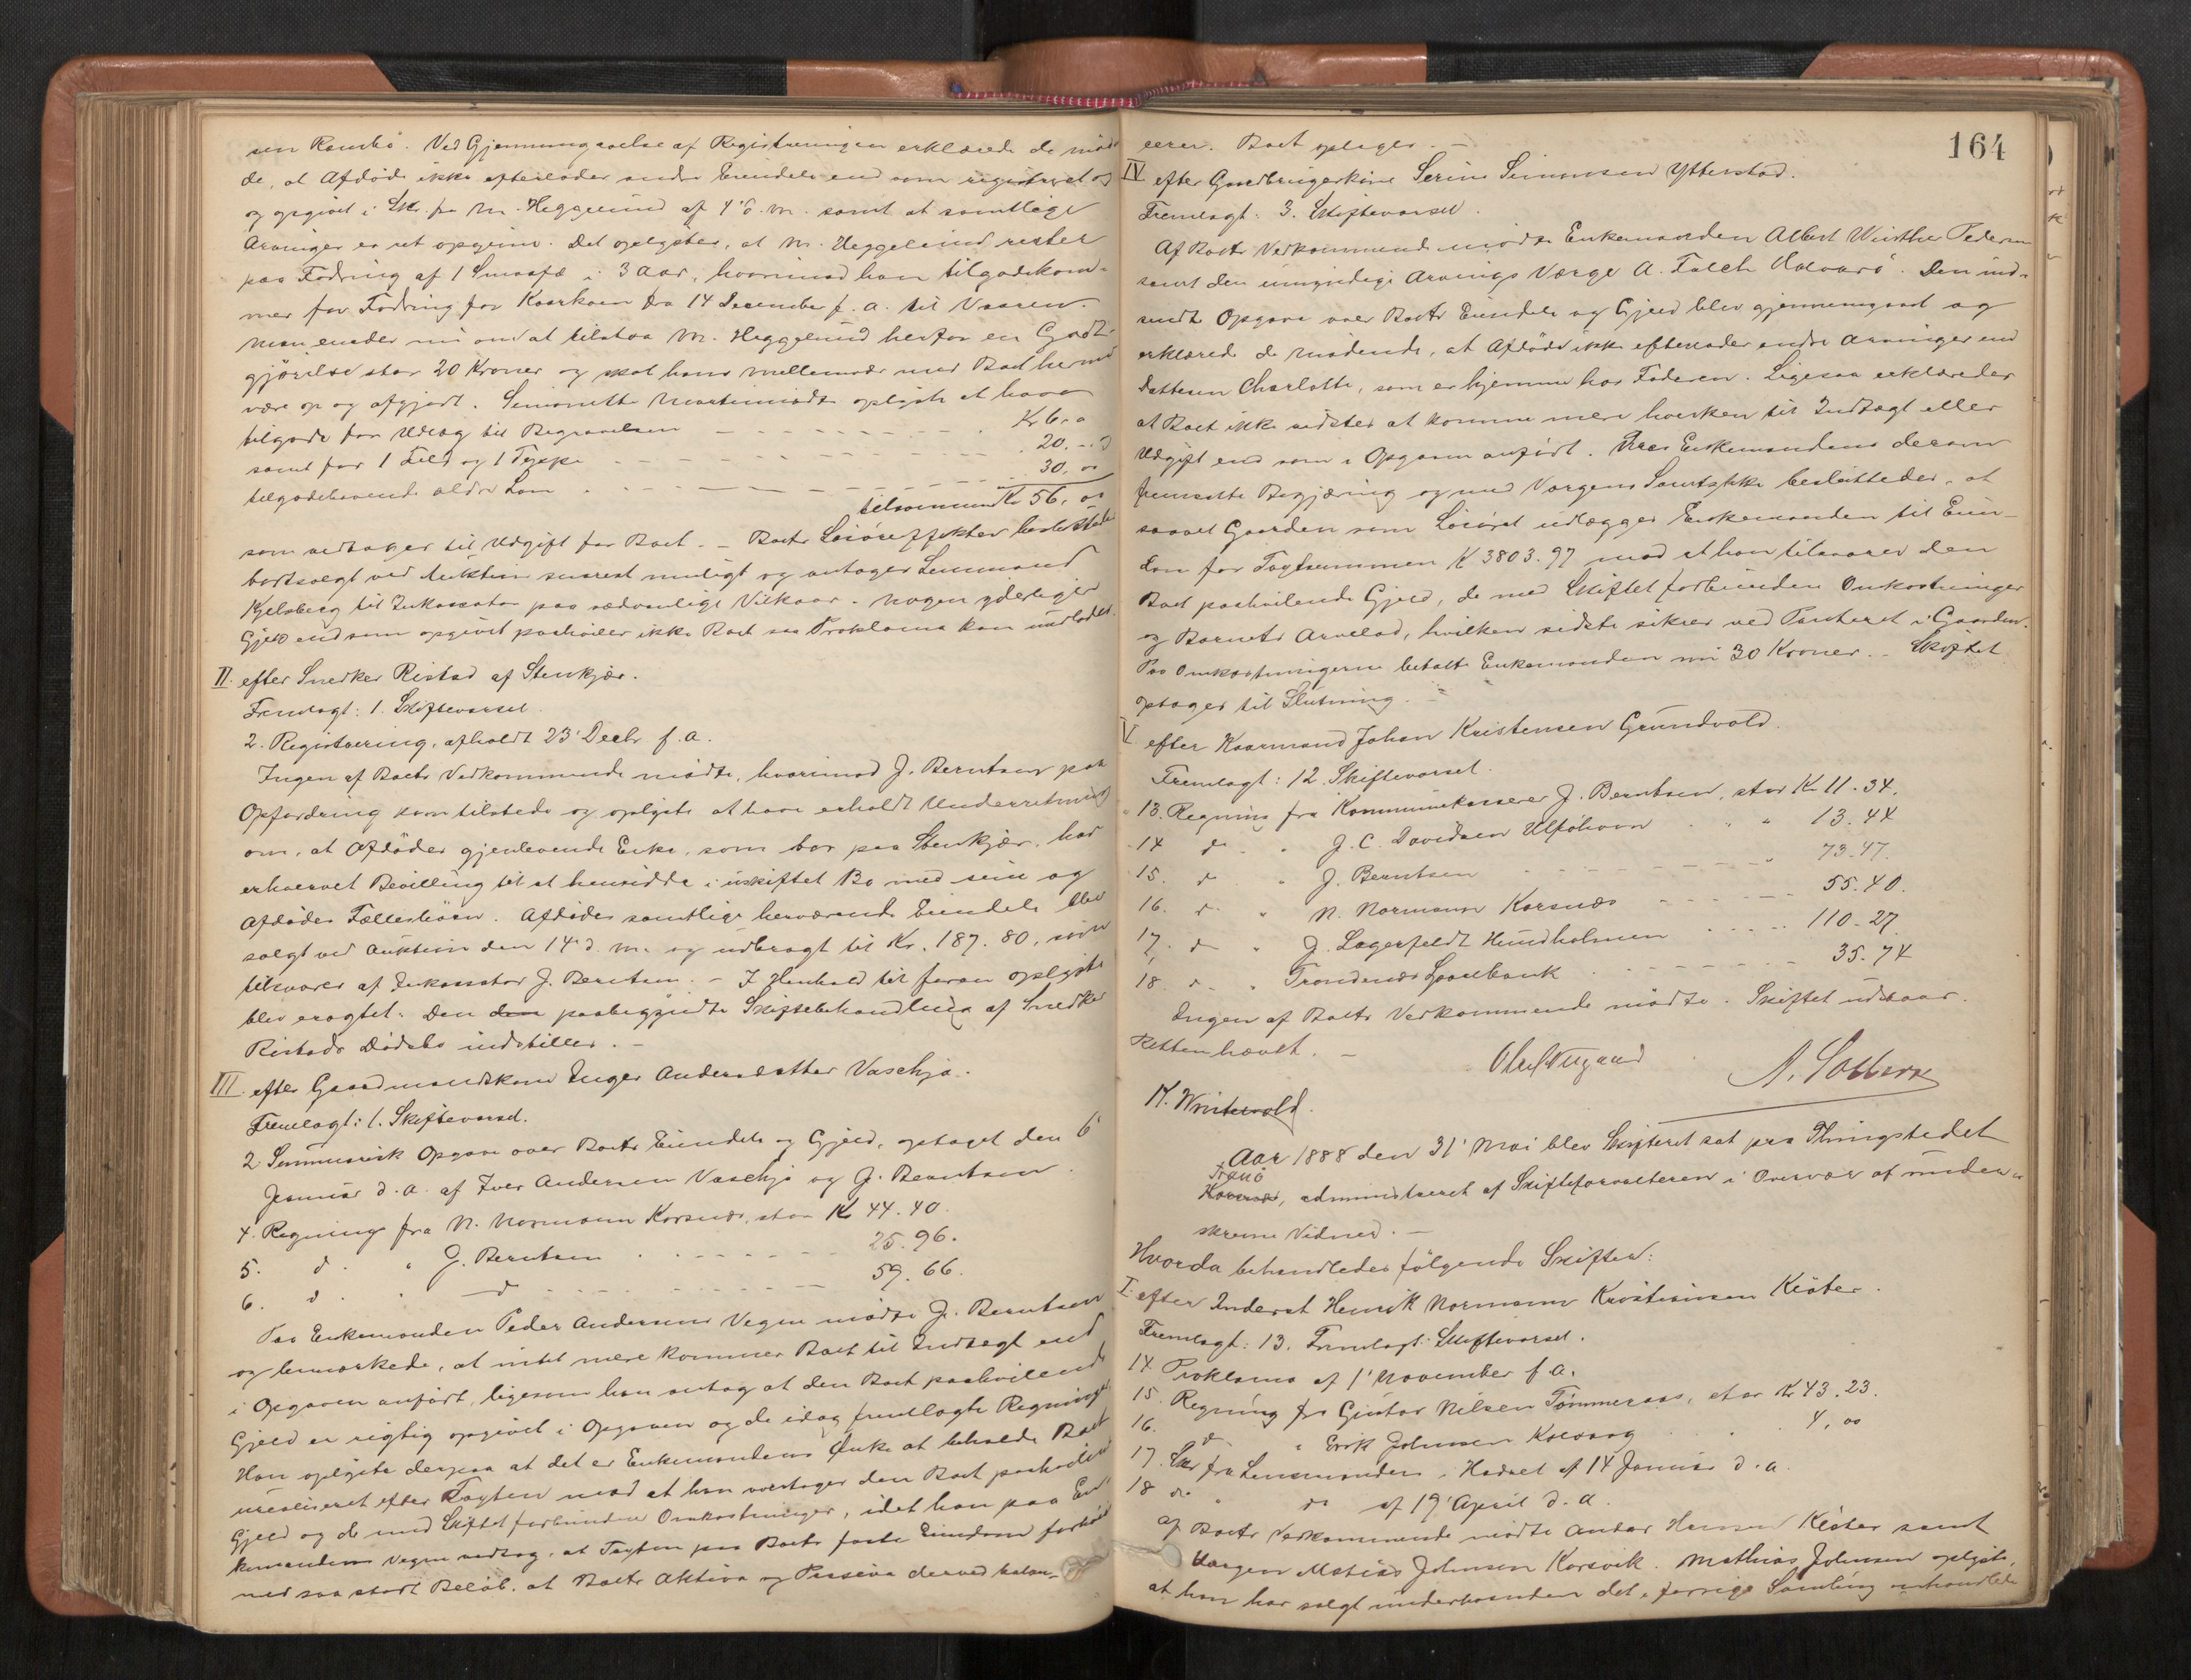 sen Rambö. Ved Gjennemgaaelse af Registreringen erklærede de mød-
de, at Afdöde ikke efterlader andre Eiendele end som registreret og
og opgivet i Skr. fra M. Heggelund af 4' d. m. samt at samtlige
Arvinger er ret opgivne. Det oplystes, at M. Heggelund rester
paa Fodring af 1 Smaafæ i 3 Aar, hvorimod han tilgodekom-
mer for Fodring for Kaarkoen fra 14 December f. a. til Vaaren.
Man enedes nu om at tilstaa M. Heggelund herfor en Godt-
gjörelse stor 20 Kroner og skal hans Mellemvær med Boet hermed
være op og afgjort. Simonette Martinusdt oplyste at have
tilgode for Udlæg til Begravelsen Kr 6. 0
samt for 1 Feld og 1 Teppe 20. -
tilgodehavende ældre Lön 30. 00
tilsammen Kr 56. 00
som vedtages til Udgift for Boet. - Boets Lösöreeffekter
bortsolgt ved Auktion snarest muligt og antages Lensmand
Kjelsberg til Inkassator paa sædvanlige Vilkaar. Nogen yderligere
Gjeld end som opgivet paahviler ikke Boet saa Proklama kan undlades.
II. efter Snedker Ristad af Stenkjær.
Fremlagt: 1. Skiftevarsel.
2. Registrering, afholdt 23' Decbr f. a.
Ingen af Boets Vedkommende mödte, hvorimod J. Berntsen paa
Opfordring kom tilstede og oplyste at have erholdt Underretning
om, at Afdödes gjenlevende Enke, som bor paa Stenkjær, har
erhvervet Bevilling til at hensidde i uskiftet Bo med sine og
Afdödes Fællesbörn. Afdödes samtlige herværende Eiendele blev
solgt ved Auktion den 14' d. m. og udbragt til Kr. 187. 80, som
tilsvares af Inkassator J. Berntsen. - I Henhold til foran oplyste
blev eragtet: Den den paabegyndte Skiftebehandling af Snedker
Ristads Dödsbo indstilles. -
III. efter Gaardmandskone Inger Andersdatter Vaschjo.
Fremlagt: 1. Skiftevarsel.
2 Summarisk Opgave over Boets Eiendele og Gjeld, optaget den 6'
Januar d. a. af Iver Andersen Vaschjo og J. Berntsen.
4. Regning fra N. Normann Korsnæs, stor Kr 44. 40.
5. d. " J. Berntsen 25. 96.
6. d. d 59. 66.
Paa Enkemanden Peder Andersens Vegne mödte J. Berntsen
og bemærkede, at intet mere kommer Boet til Indtægt end
i Opgaven anfört, ligesom han antog at den Boet paahvilende
Gjeld er rigtig opgivet i Opgaven og de idag fremlagte Regninger.
Han oplyste derpaa at det er Enkemandens Ønske at beholde Boet
urealiseret efter Taxten mod at han overtager den Boet paahvilende
Gjeld og de med Skiftet forbundne Omkostninger, idet han paa En-
kemandens Vegne vedtog, at Taxten paa Boets faste Eiendom forhöies
med saa stort Belöb, at Boets Aktiva og Passiva derved balan-
164
cerer. Boet optages. -
IV efter Gaardbrugerkone Serine Simonsen Ytterstad.
Fremlagt: 3. Skiftevarsel.
Af Boets Vedkommende mödte Enkemanden Albert Winther Pedersen
samt den umyndige Arvings Værge A. Falch Kalvaas. Den ind-
sendte Opgave over Boets Eiendele og Gjeld blev gjennemgaaet og
erklærede de Mödende, at Afdöde ikke efterlader andre Arvinger end
datteren Charlotte, som er hjemme hos Faderen. Ligesaa erklæredes
at Boet ikke vidstes at komme mere hverken til Indtægt eller
Udgift end som i Opgaven anfört. Efter Enkemandens derom
fremsatte Begjæring og med Værgens Samtykke besluttedes, at
saavel Gaarden som Lösöret udlægges Enkemanden til Eien-
dom for Taxtsummen K 3803. 97 mod at han tilsvarer den
Boet paahvilende Gjeld, de med Skiftet forbundne Omkostninger
og Barnets Arvelod, hvilken sidste sikres ved Panteret i Gaarden.
Paa Omkostningerne betalte Enkemanden nu 30 Kroner. - Skiftet
optages til Slutning. -
V efter Kaarmand Johan Kristensen Grundvold.
Fremlagt: 12. Skiftevarsel.
13. Regning fra Kommunekasserer J. Berntsen, stor Kr 11. 34.
14 do " J. C. Davidsen Ulfshavn " " 13. 44
15. d " J. Berntsen " 73. 47.
16. d. " N. Normann Korsnæs 55. 40.
17. d " J. Lagerfeldt Hundholmen 110. 27
18 d. " Trondenæs Sparebank 35. 74
Ingen af Boets Vedkommende mödte. Skiftet udstaar.
Retten hævet. -
A. Solberg
K. Wintervold.
Aar 1888 den 31' Mai blev Skifteret sat paa Thingstedet
Tranö
Korsnæs, administreret af Skifteforvalteren i Overvær af under-
skrevne Vidner. -
Hvorda behandledes fölgende Skifter:
I. efter Inderst Henrik Normann Kristiansen Kiöter.
Fremlagt: 13. Fremlagt: Skiftevarsel.
14 Proklama af 1' November f. a.
15. Regning fra Gustav Nilsen Tömmeraas, stor Kr 43. 23.
16. d " Erik Johnsen Kalvaag 4. 00
17. Skr fra Lensmanden i Hadsel af 14 Januar d. a.
18 do " do af 19' April d. a.
Af Boets Vedkommende mödte Antor Hansen Kiöter samt
Værgen Matias Johnsen Korsvik. Mathias Johnsen oplyste,
at han har solgt underhaanden det i forrige Samling omhandlede